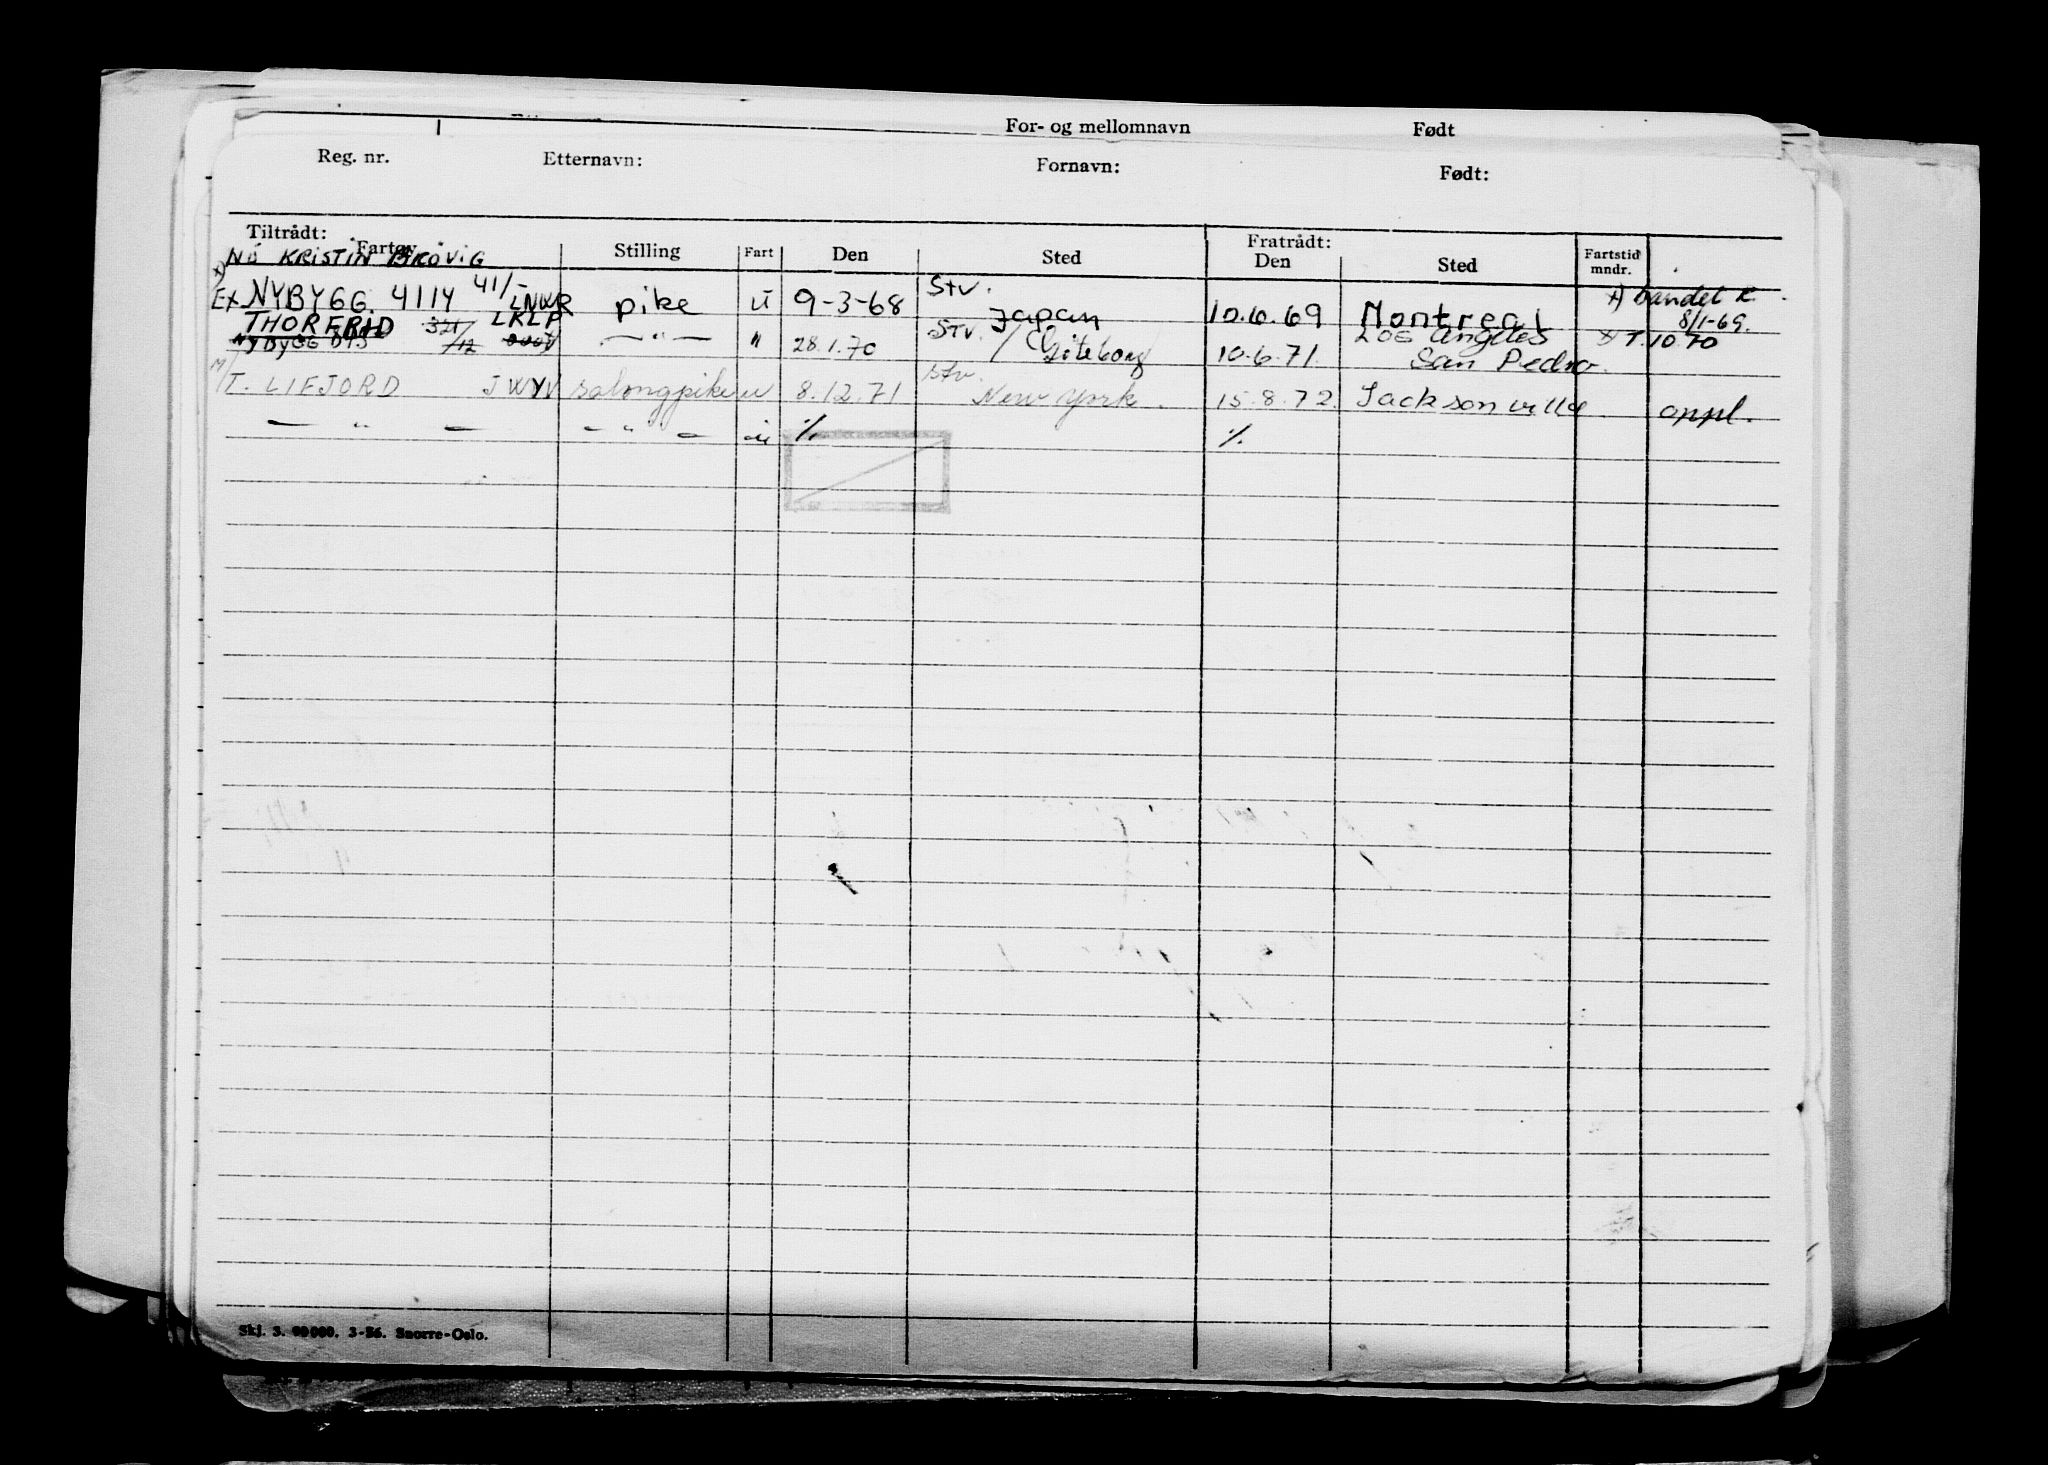 For- og mellomnavn Født
Reg. nr. Etternavn: Fornavn: Født:
Tiltrådt: Fratrådt:
Fartøy Stilling Fart Den Sted Den Sted Fartstid mndr.
x) Nå KRISTIN BRØVIG
EX NYBYGG. 4114 41/- LNWR pike u 9-3-68 Stv. Japan 10.6.69 Montreal x) døndet 8/1-69.
THORFRID 321/12 LKLP — " — " 28.1.70 Stv. / Göteborg 10.6.71 Los Angeles San Pedro. x T.10.70
NyByGG
M/T. LIEFJORD JWYV salongpike u 8.12.71 stv. New York. 15.8.72. Jacksonville oppl.
— " — — " — ./. ./.
Skj. 3. 3-56. Snorre-Oslo.